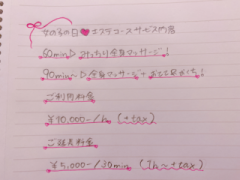 女の子の日❤エステコースサービス内容
60min▷ みっちり全身マッサージ!
90min▷ 全身マッサージ+
ご利用料金
¥10,000-/h (+tax)
ご延長料金
¥5,000-/30min (1h~+tax)